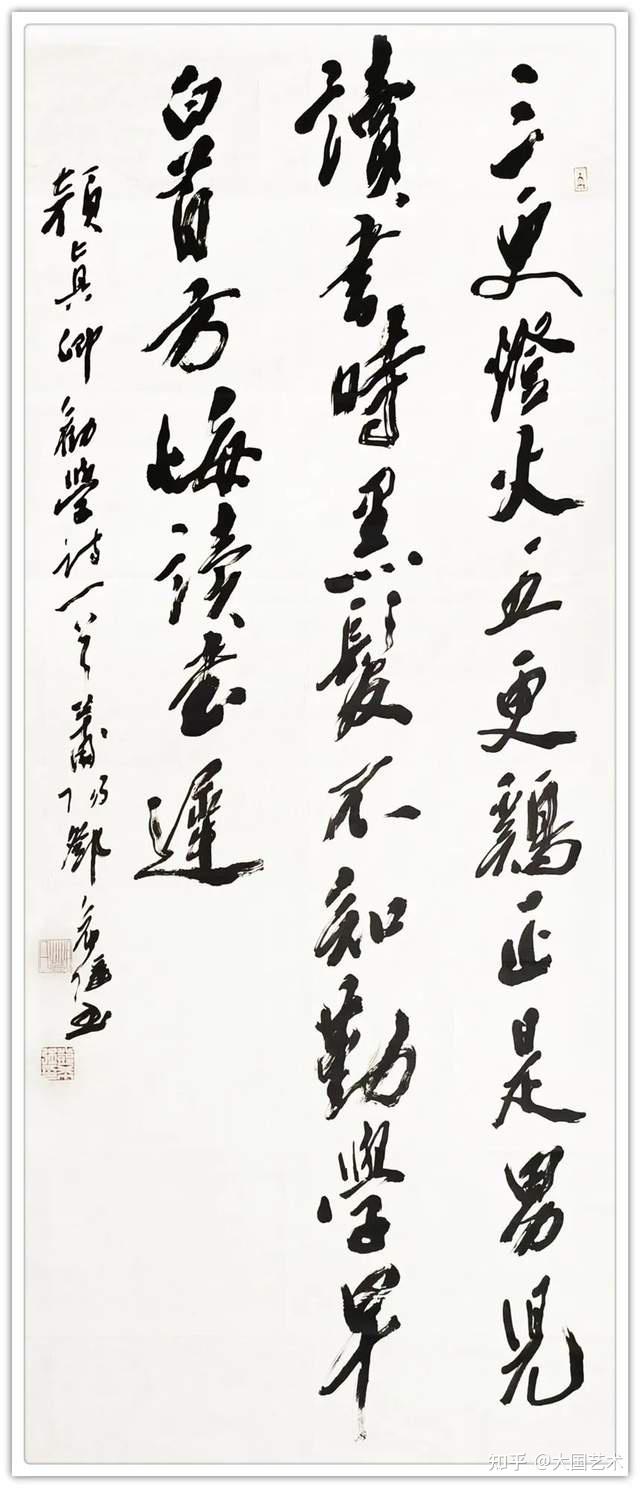 三更燈火五更鷄正是男兒
讀書時黑髮不知勤學早
白首方悔讀書遲
顏真卿勸學詩一首 鄧 書
知乎 @大国艺术